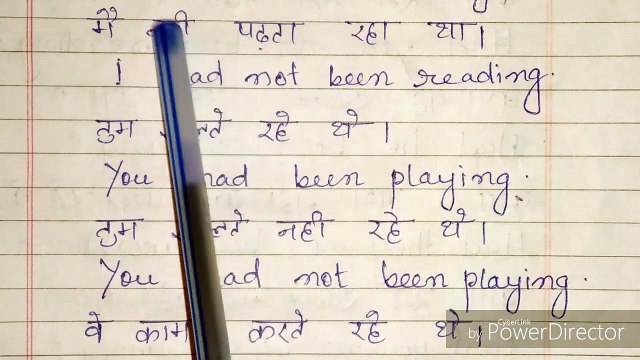 मै पढ़ता रहा था।
I not been reading.
तुम रहे थे।
You had been playing.
तुम नही रहे थे।
You not been playing.
वे काम करते रहे थे।
CyberLink
by PowerDirector